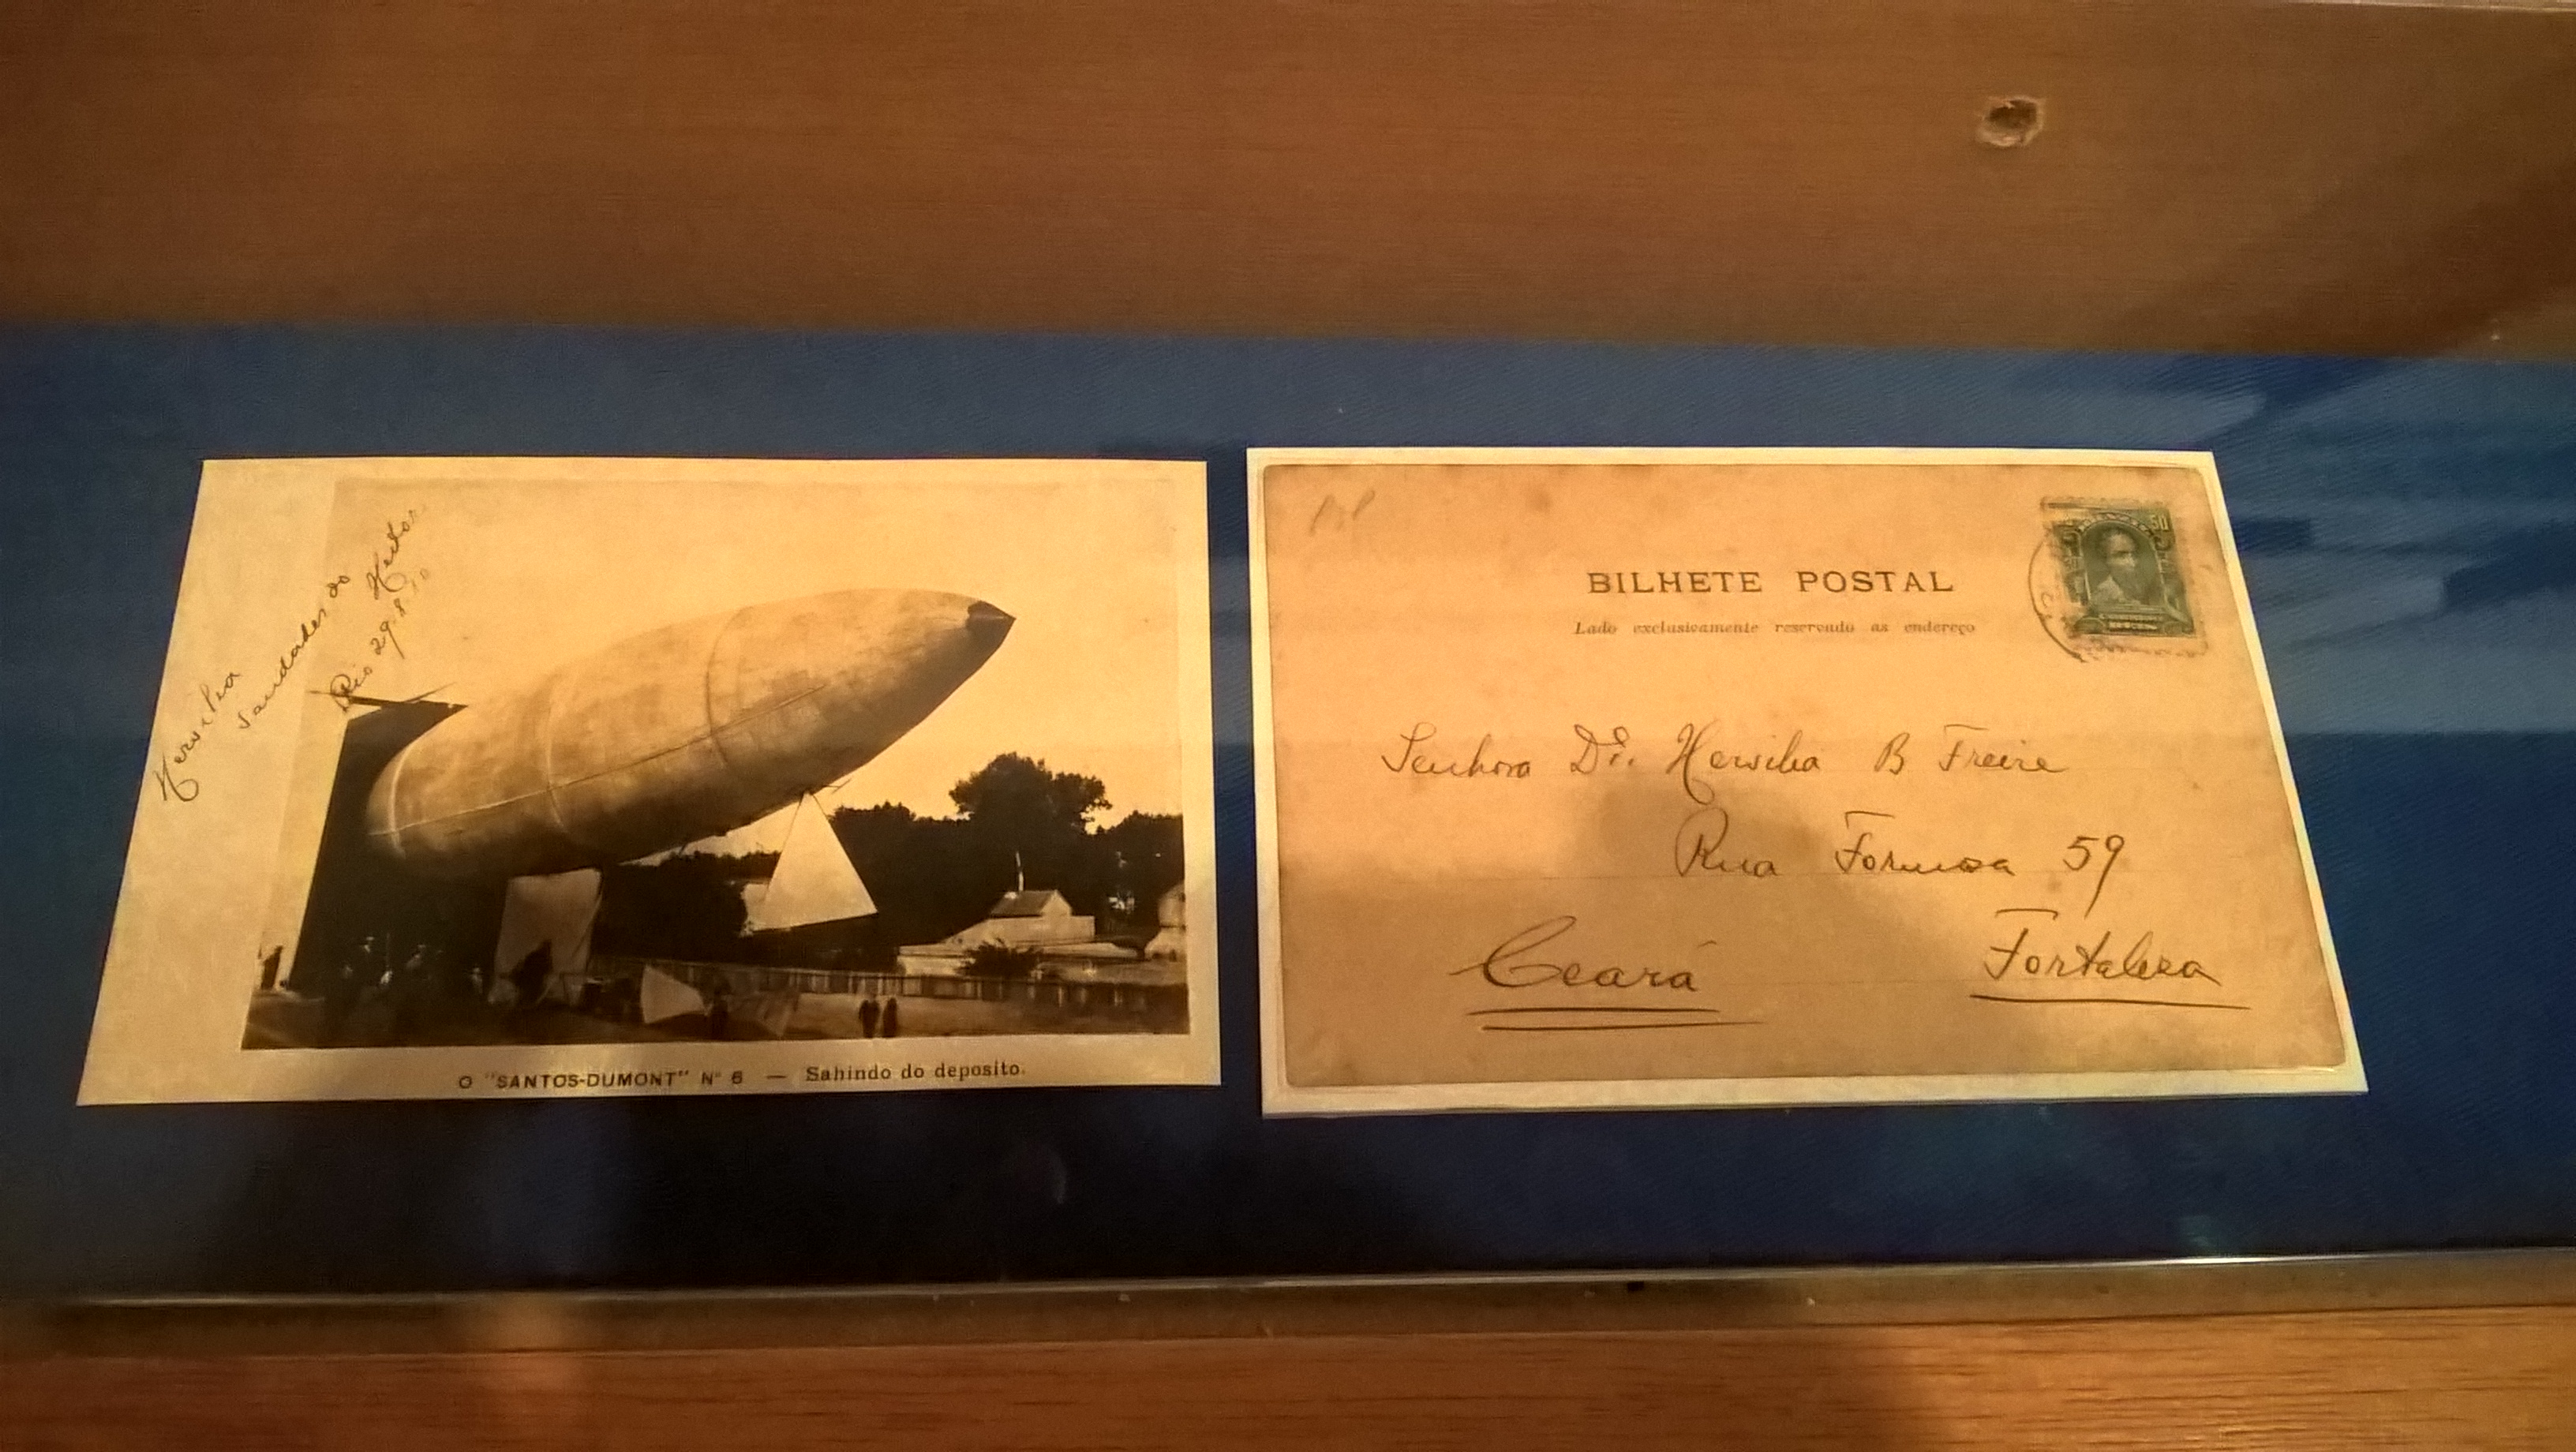 Hersilia
Saudades do Heitor
Rio 29.8.10
O "SANTOS-DUMONT" Nº 6 — Sahindo do deposito.
BILHETE POSTAL
Lado exclusivamente reservado ao endereço
50
Senhora D. Hersilia B Freire
Rua Formosa 59
Fortaleza
Ceará